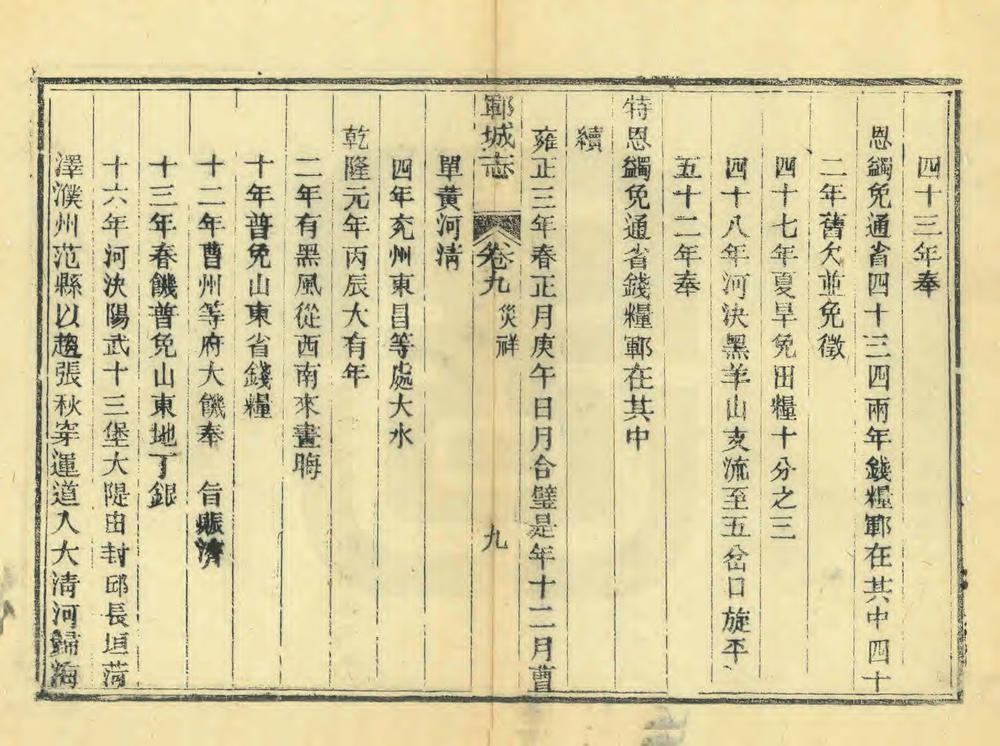 四十三年奉
恩蠲免通省四十三四兩年錢糧鄆在其中四十
二年舊欠並免徵
四十七年夏旱免田糧十分之三
四十八年河決黑羊山支流至五岔口旋平
五十二年奉
特恩蠲免通省錢糧鄆在其中
續
雍正三年春正月庚午日月合璧是年十二月曹
鄆城志 卷九 災祥 九
單黃河清
四年兖州東昌等處大水
乾隆元年丙辰大有年
二年有黑風從西南來晝晦
十年普免山東省錢糧
十二年曹州等府大饑奉 旨賑濟
十三年春饑普免山東地丁銀
十六年河決陽武十三堡大隄由封邱長垣菏
澤濮州范縣以趨張秋穿運道入大淸河歸海